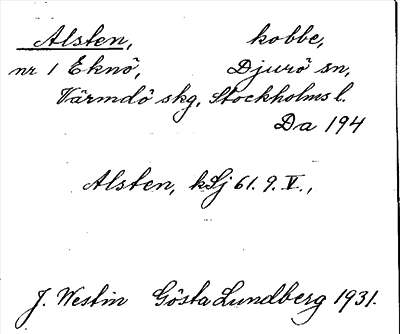 Alsten, kobbe,
nr 1 Eknö, Djurö sn,
Värmdö skg, Stockholms l.
Da 194
Alsten, kSj 61. 9. V.,
J. Westin Gösta Lundberg 1931.